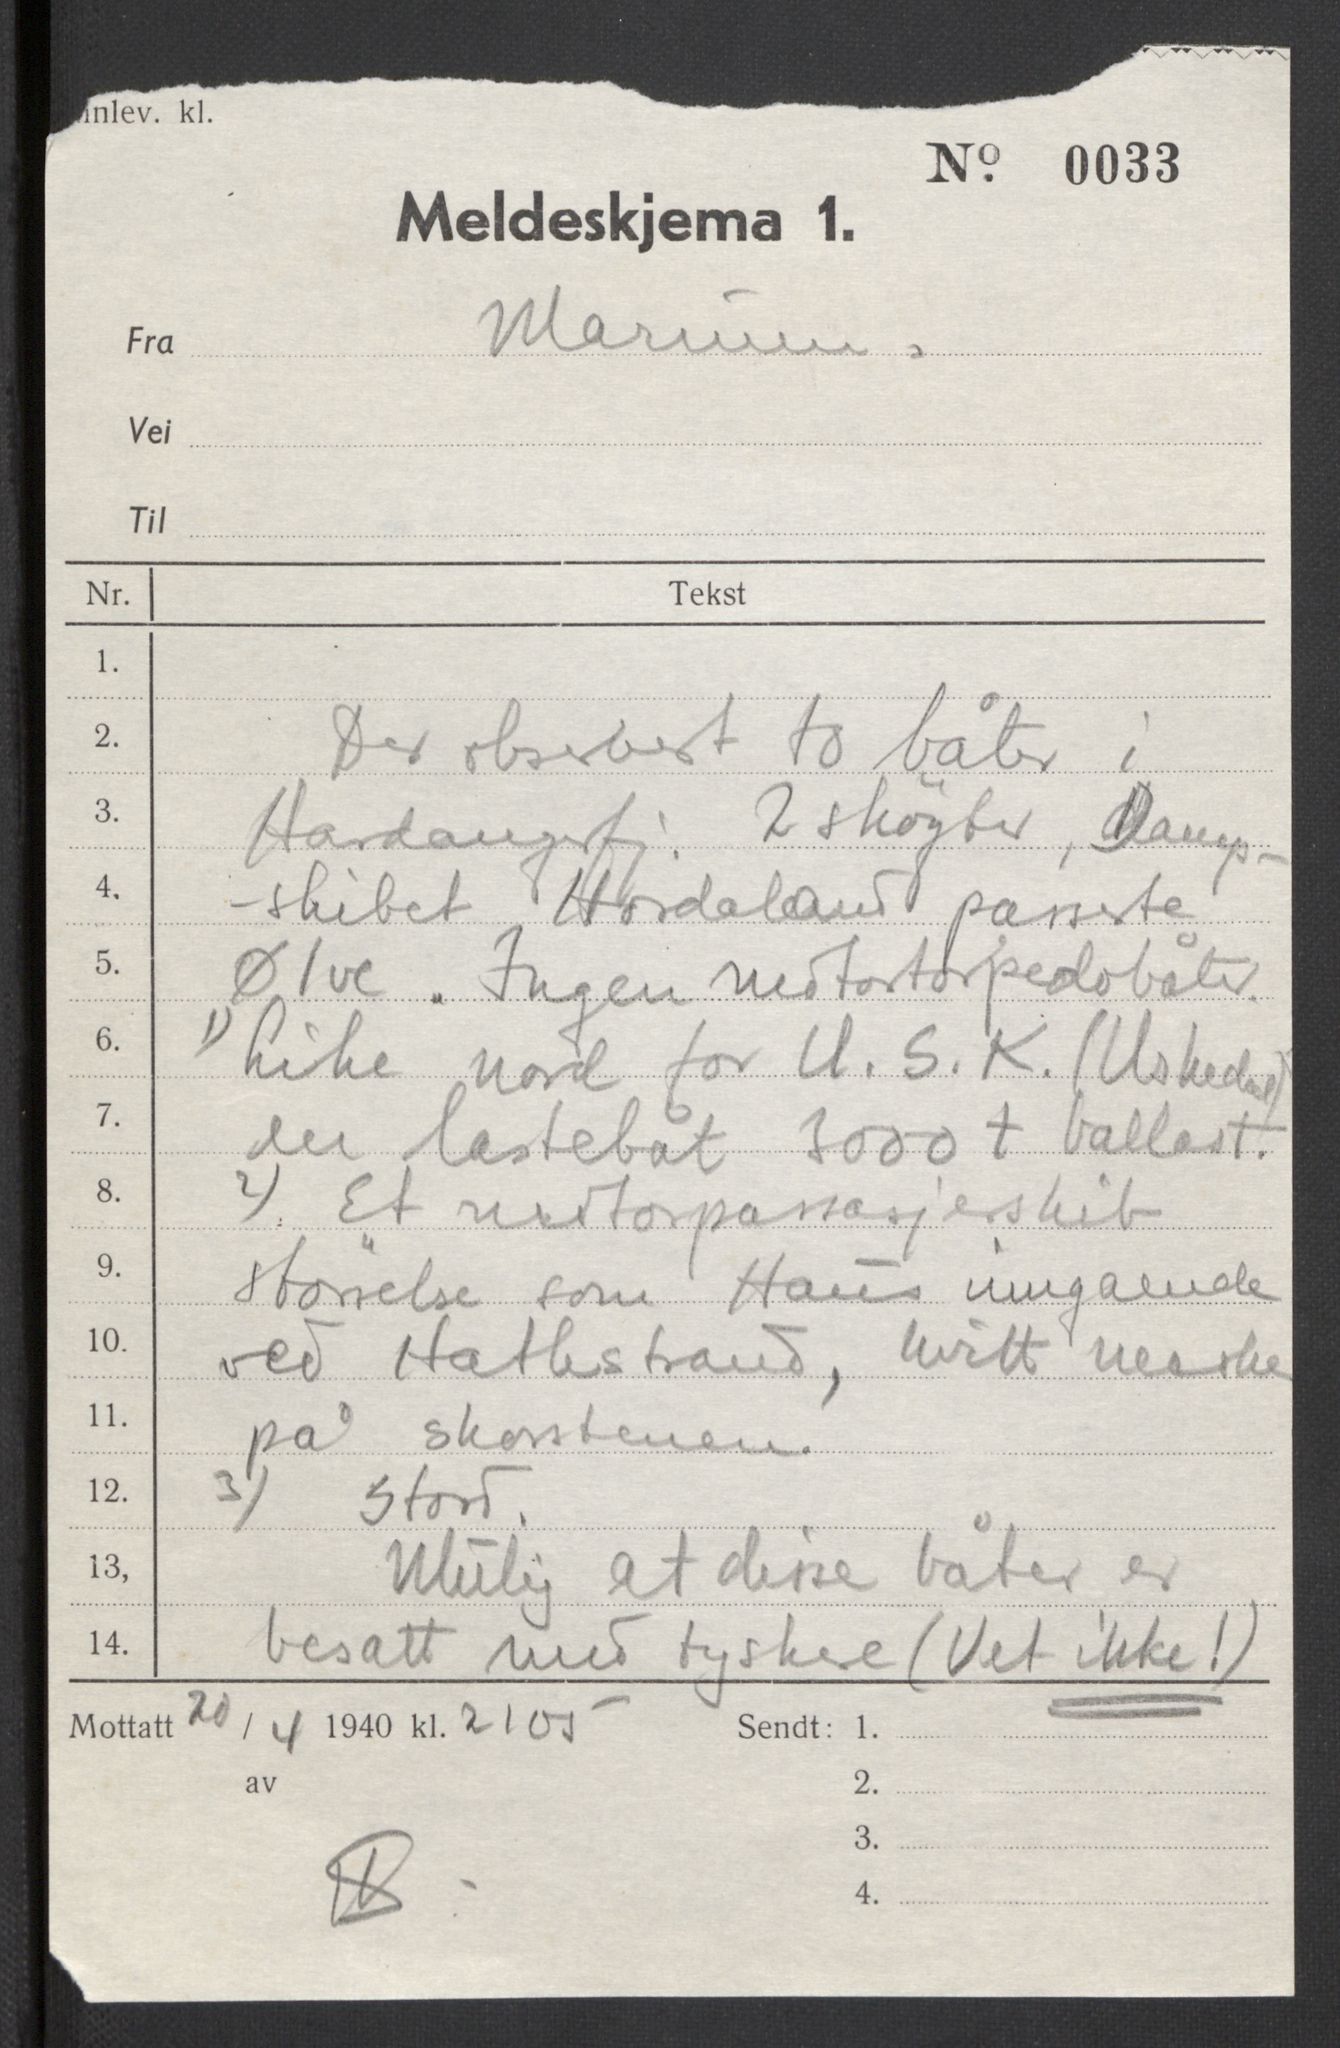 innlev. kl.
Nº. 0033
Meldeskjema 1.
Fra Marinen.
Vei
Til
Nr. Tekst
1.
2. Der observert to båter i
3. Hardangerfj. 2 sköyter, Damp-
4. -skibet Hordaland passerte
5. Ølve. Ingen motortorpedobåter.
6. 1) Like nord for U.S.K. (Uskedal)
7. en lastebåt 3000 t ballast.
8. 2) Et motorpassasjerskib
9. störrelse som Haus inngaende
10. ved Hatlestrand, hvitt merke
11. på skorstenen.
12. 3) Stord.
13, Mulig at disse båter er
14. besatt med tyskere (Vet ikke!)
Mottatt 20/4 1940 kl. 2105 Sendt: 1.
av 2.
3.
4.